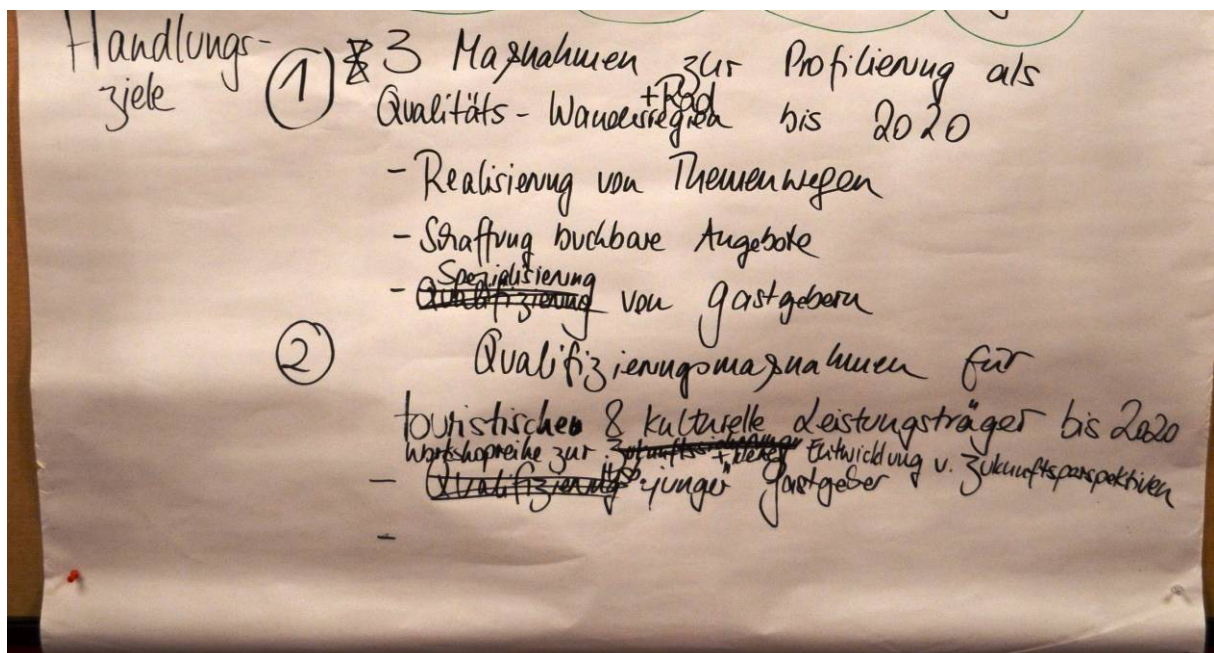 Handlungs-
ziele
① 3 Maßnahmen zur Profilierung als
+Rad
Qualitäts-Wanderregion bis 2020
- Realisierung von Themenwegen
- Schaffung buchbare Angebote
Spezialisierung
- Qualifizierung von Gastgebern
② Qualifizierungsmaßnahmen für
touristische & kulturelle Leistungsträger bis 2020
Workshopreihe zur Zukunftssicherung Entwicklung v. Zukunftsperspektiven
- Qualifizierung "junger" Gastgeber
-